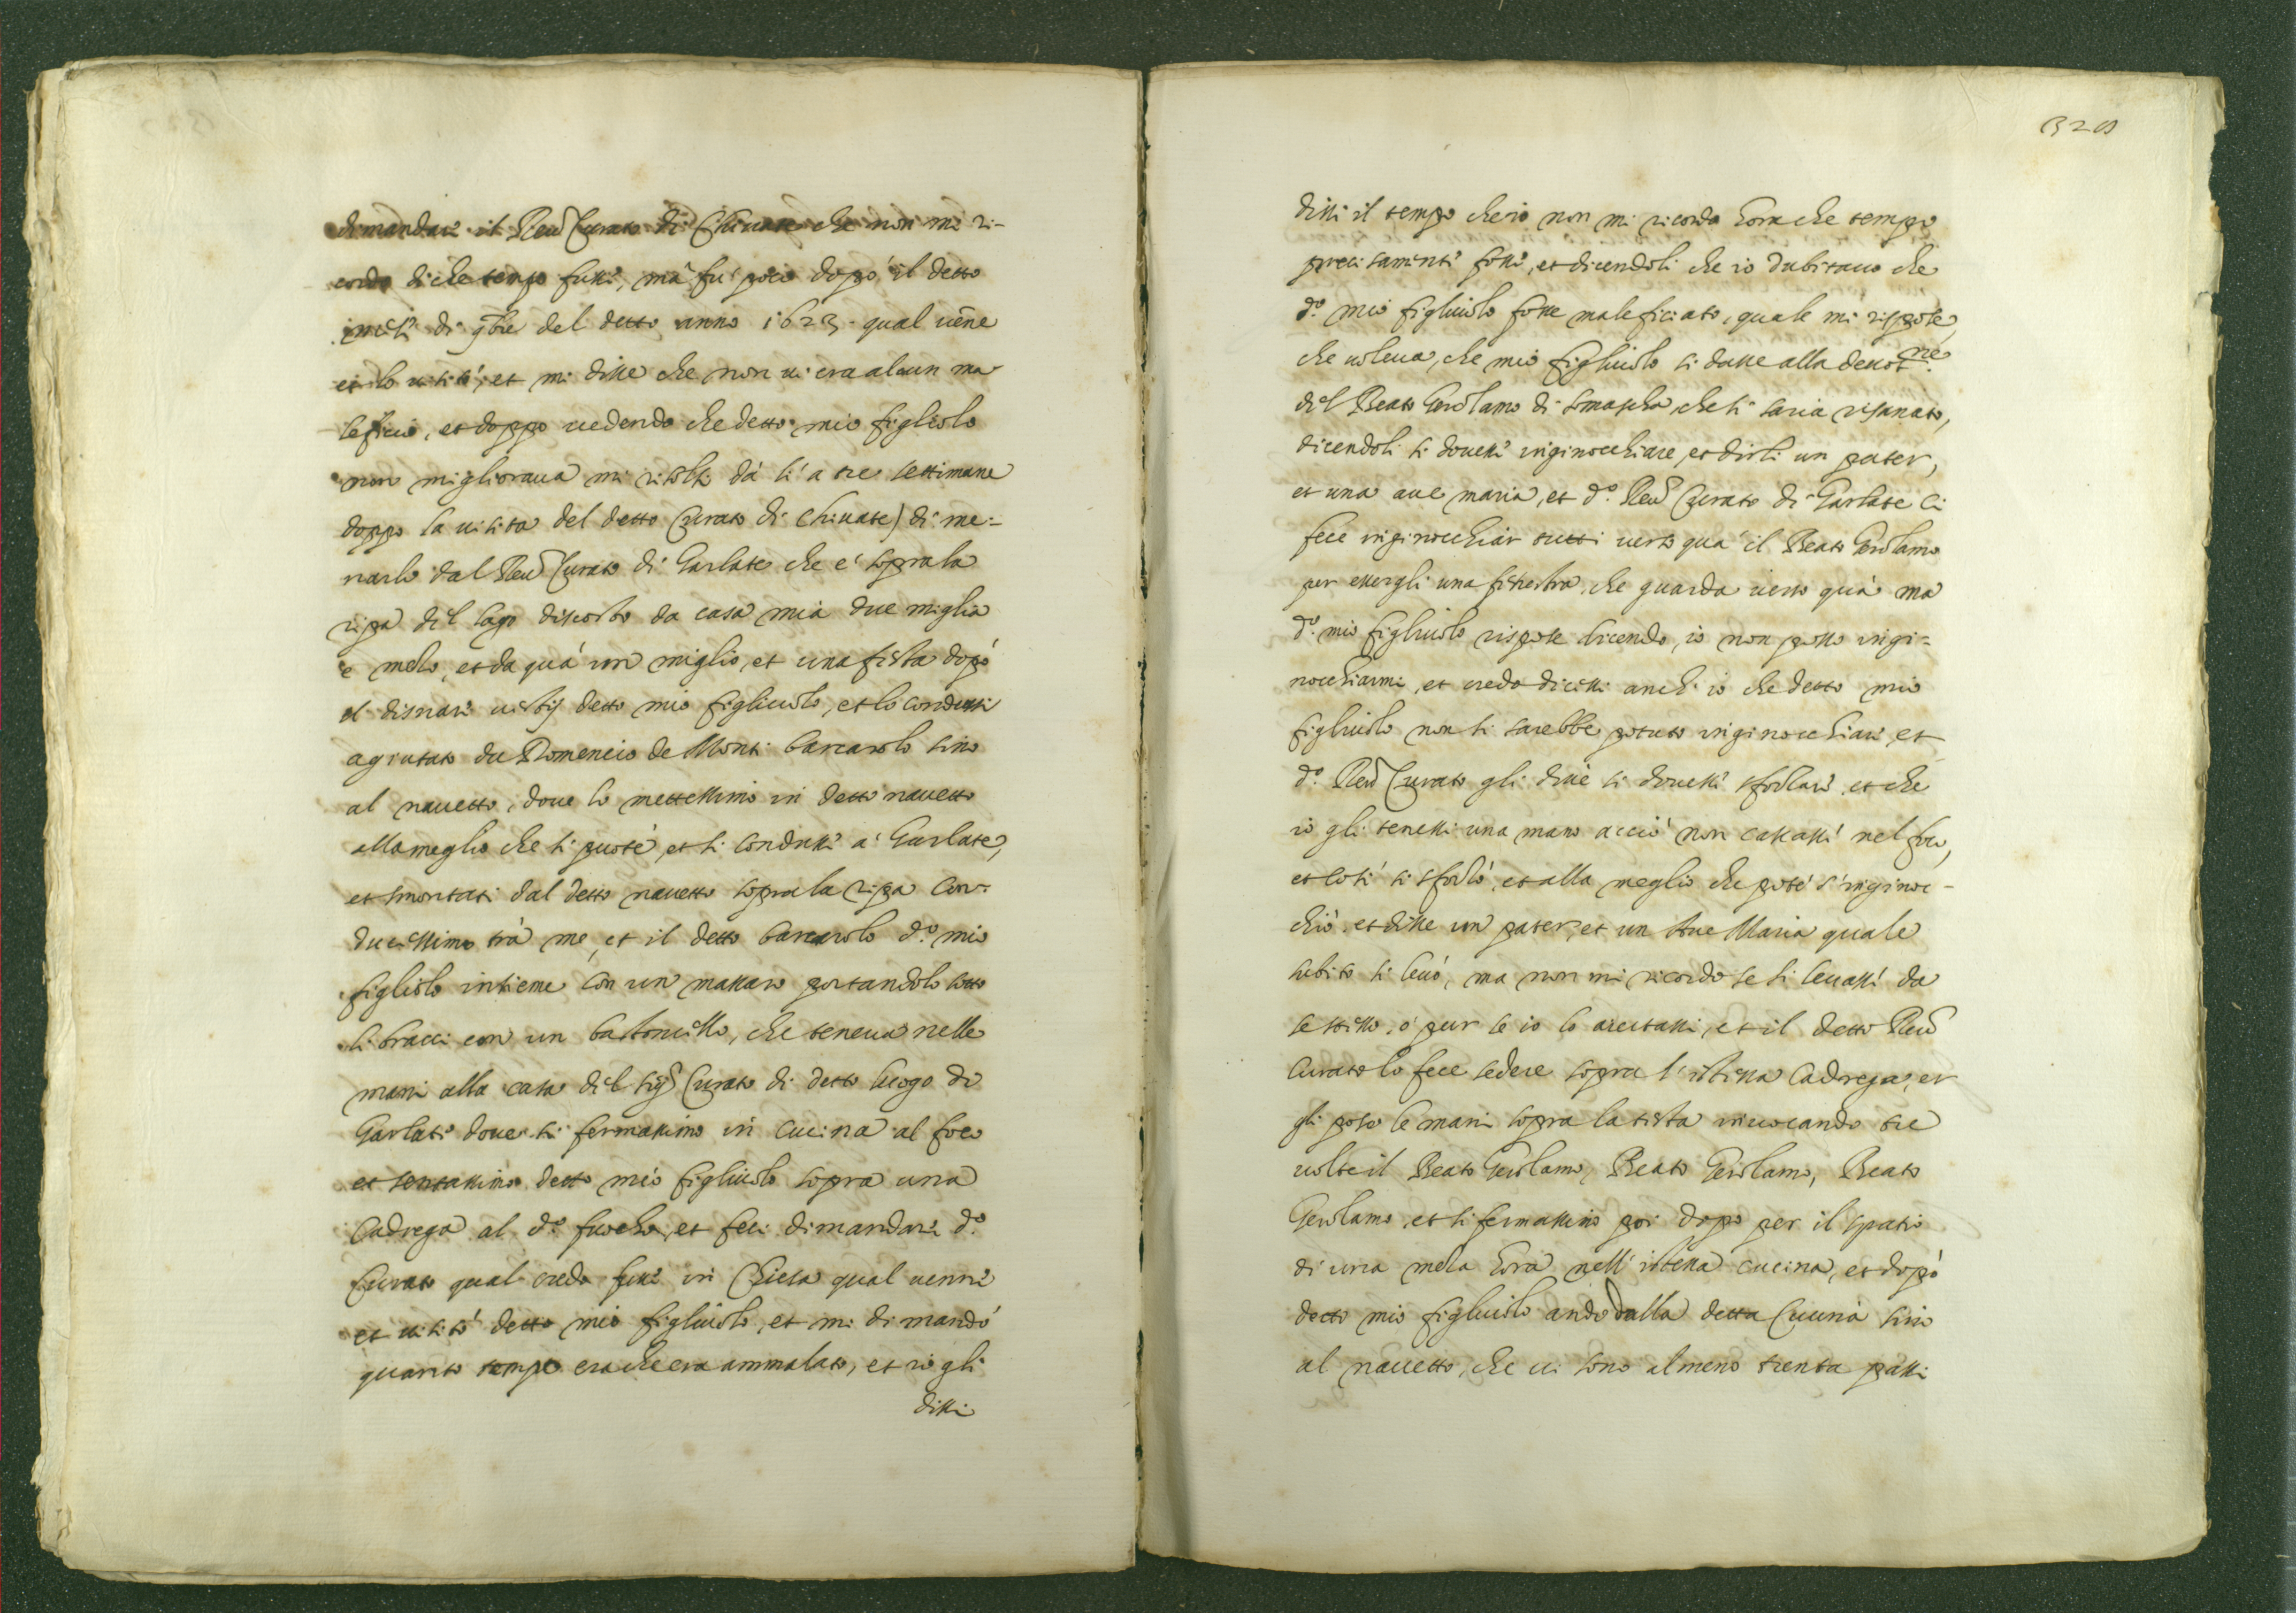 dimandare il Reud Curato di Chiuate che non mi ri-
cordo di che tempo fusse, mà fu poco dopò il detto
mese di 9bre del detto anno 1623. qual uene
et lo uisitò, et mi disse che non ui era alcun ma
leficio, et doppo uedendo che detto mio figliolo
non miglioraua mi risolsi dà li a tre settimane
doppo la uisita del detto Curato di Chiuate) di me=
narlo dal Reud Curato di Garlate che è sopra la
ripa del lago discosto da casa mia due miglia
e mezo, et da quà un miglio, et una festa dopò
el disnare uestij detto mio figliuolo, et lo condussi
agiutato da Domenico de Monti barcarolo sino
al nauetto, doue lo mettessimo in detto nauetto
alla meglio che si puotè, et si condusse a Garlate,
et smontati dal detto nauetto sopra la ripa con=
ducessimo trà me, et il detto barcarolo d.o mio
figliolo insieme con un massaro portandolo sotto
li bracci con un bastoncello, che teneua nelle
mani alla casa del sigr Curato di detto luogo di
Garlate doue si fermassimo in cucina al foco
et sentassimo detto mio figliuolo sopra una
Cadrega al d.o fuocho, et feci dimandare d.o
Curato qual credo fusse in Chiesa qual uenne
et uisitò detto mio figliuolo, et mi dimandò
quanto tempo era che era ammalato, et io gli
dissi
dissi il tempo che io non mi ricordo hora che tempo
precisamente fosse, et dicendoli che io dubitauo che
d.o mio figliuolo fosse maleficiato, quale mi rispose,
che uoleua, che mio figliuolo si dasse alla deuotne
del Beato Gerolamo di Somascha che si saria risanato,
dicendoli si douesse inginocchiare, et dirli un pater,
et una aue maria, et d.o Reud Curato di Garlate ci
fece inginocchiar tutti uerso quà il Beato Gerolamo
per essergli una finestra, che guarda uerso quà mà
d.o mio figliuolo rispose dicendo, io non posso ingi=
nocchiarmi, et credo dicessi anch'io che detto mio
figliuolo non si sarebbe potuto inginocchiare, et
d.o Reud Curato gli disse si douesse sforzare, et che
io gli tenessi una mano acciò non cascasse nel foco,
et cosi si sforzò, et alla meglio che potè s'inginoc-
chiò, et disse un pater, et un Aue Maria quale
subito si leuò, ma non mi ricordo se si leuasse da
se stesso, ò pur se io lo aiutassi, et il detto Reud
Curato lo fece sedere sopra l'istessa Cadrega, et
gli pose le mani sopra la testa inuocando tre
uolte il Beato Gerolamo, Beato Gerolamo, Beato
Gerolamo, et si fermassimo poi dopo per il spatio
di una meza hora nell'istessa cucina, et dopò
detto mio figliuolo andò dalla detta Cucina sino
al nauetto, che ui sono almeno trenta passi